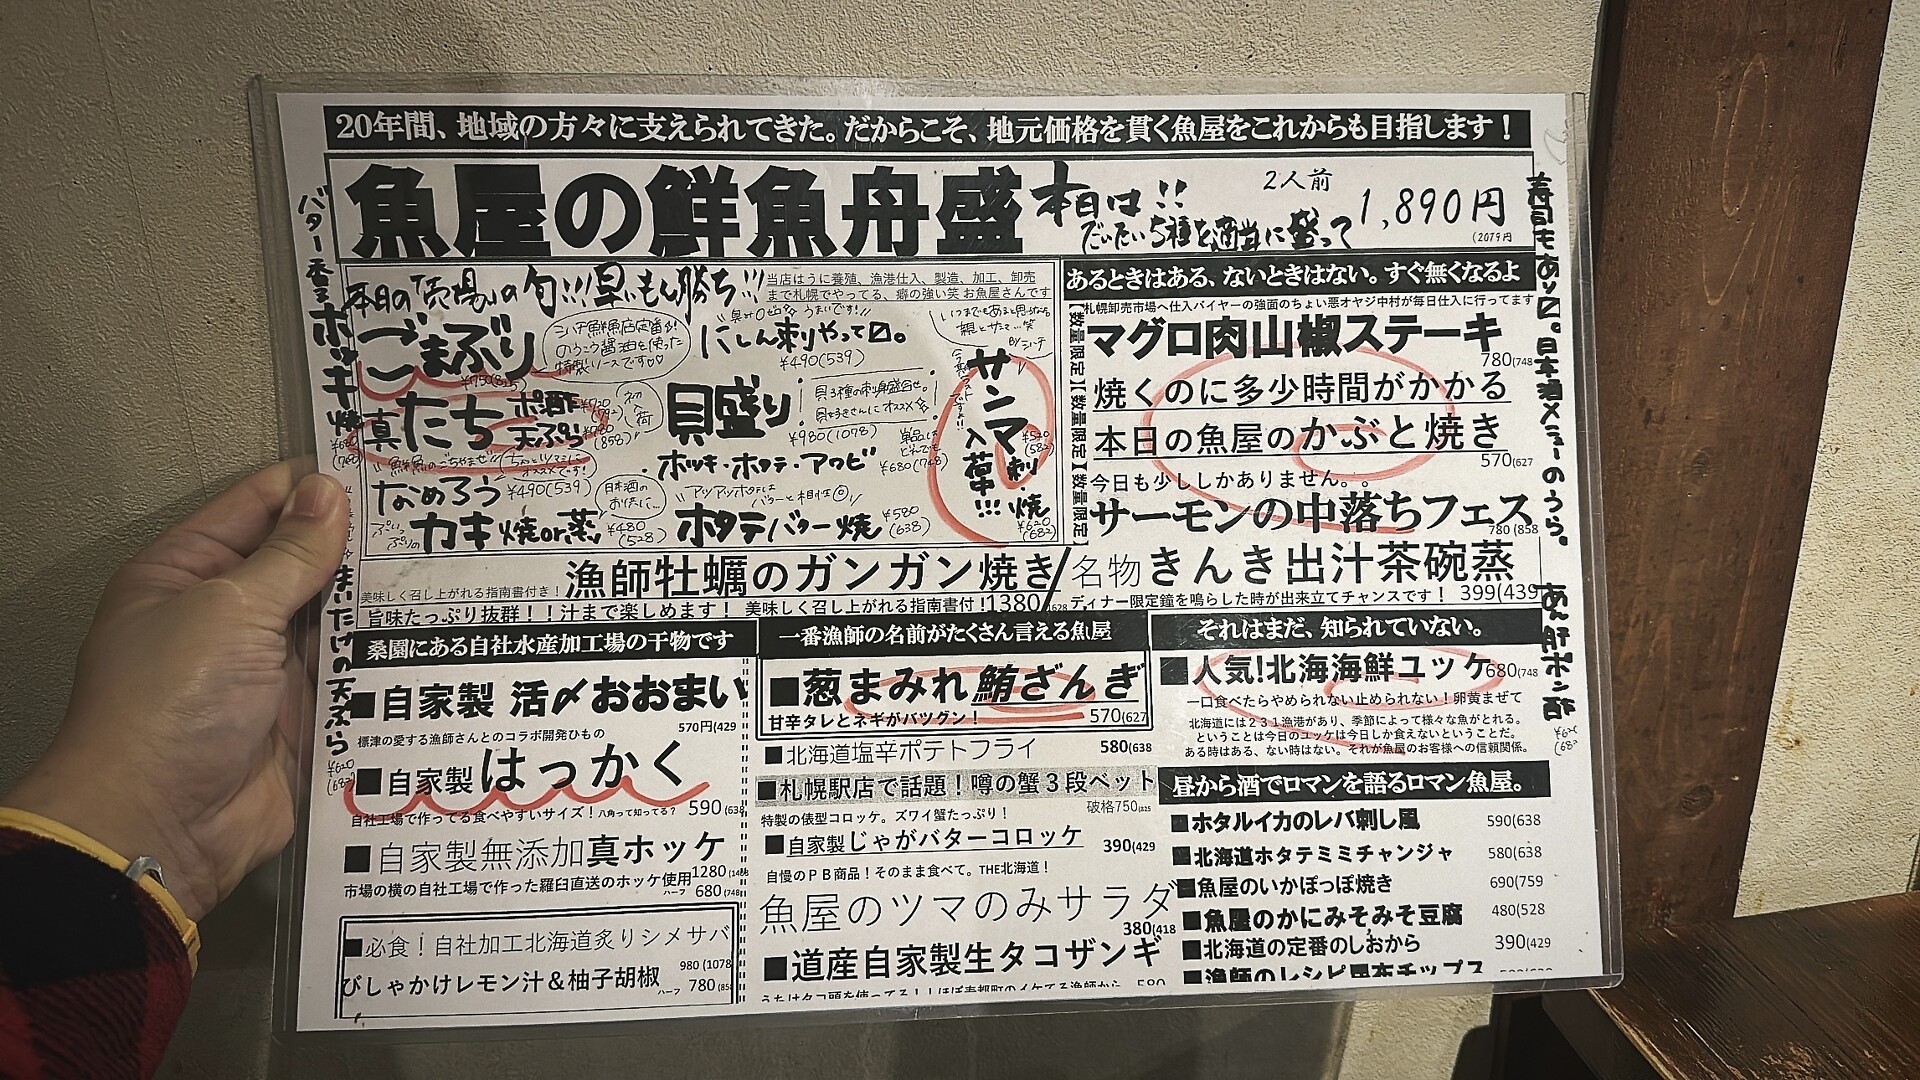 20年間、地域の方々に支えられてきた。だからこそ、地元価格を貫く魚屋をこれからも目指します！
魚屋の鮮魚舟盛
本日は!!
だいたい5種を適当に盛って
2人前
1,890円
(2079円
本日の「市場」の旬!!!早いもん勝ち!!!
当店はうに養殖、漁港仕入、製造、加工、卸売
まで札幌でやってる、癖の強い笑 お魚屋さんです
ごまぶり
にしん刺やって〼。
¥490(539)
真たち
ポン酢
天ぷら
(858)
初入荷
貝盛り
貝3種の刺身盛合せ。
貝好きさんにオススメ☆
¥980(1078)
ホッキ・ホタテ・アワビ
¥680(748)
なめろう
¥490(539)
日本酒の
お供に…
カキ 焼or蒸
¥480
(528)
ホタテバター焼
¥580
(638)
サンマ
入荷中!!!
刺・焼
¥620
(682)
バター香るホッキ焼
まいたけの天ぷら
¥620
(682)
漁師牡蠣のガンガン焼き
美味しく召し上がれる指南書付き！
旨味たっぷり抜群！！汁まで楽しめます！ 美味しく召し上がれる指南書付！1380
あるときはある、ないときはない。すぐ無くなるよ
札幌卸売市場へ仕入バイヤーの強面のちょい悪オヤジ中村が毎日仕入に行ってます
【数量限定】【数量限定】【数量限定】
マグロ肉山椒ステーキ
780(748
焼くのに多少時間がかかる
本日の魚屋のかぶと焼き
570(627
今日も少ししかありません。。
サーモンの中落ちフェス
780(858
名物きんき出汁茶碗蒸
ディナー限定鐘を鳴らした時が出来立てチャンスです！ 399(439
寿司もあり〼。日本酒メニューのうら。
あん肝ポン酢
桑園にある自社水産加工場の干物です
■自家製 活〆おおまい
570円(429
標津の愛する漁師さんとのコラボ開発ひもの
■自家製はっかく
自社工場で作ってる食べやすいサイズ！八角って知ってる？ 590(638
■自家製無添加真ホッケ
市場の横の自社工場で作った羅臼直送のホッケ使用1280
ハーフ 680(748
■必食！自社加工北海道炙りシメサバ
びしゃかけレモン汁＆柚子胡椒
980 (1078
ハーフ 780(858
一番漁師の名前がたくさん言える魚屋
■葱まみれ鮪ざんぎ
甘辛タレとネギがバツグン！
570(627
■北海道塩辛ポテトフライ
580(638
■札幌駅店で話題！噂の蟹３段ベット
破格750(825
特製の俵型コロッケ。ズワイ蟹たっぷり！
■自家製じゃがバターコロッケ
390(429
自慢のＰＢ商品！そのまま食べて。THE北海道！
魚屋のツマのみサラダ
380(418
■道産自家製生タコザンギ
うちはタコ頭を使ってる！！ほぼ寿都町のイケてる漁師から 580
それはまだ、知られていない。
■人気！北海海鮮ユッケ680(748
一口食べたらやめられない止められない！卵黄まぜて
北海道には２３１漁港があり、季節によって様々な魚がとれる。
ということは今日のユッケは今日しか食えないということだ。
ある時はある、ない時はない。それが魚屋のお客様への信頼関係。
昼から酒でロマンを語るロマン魚屋。
■ホタルイカのレバ刺し風 590(638
■北海道ホタテミミチャンジャ 580(638
■魚屋のいかぽっぽ焼き 690(759
■魚屋のかにみそみそ豆腐 480(528
■北海道の定番のしおから 390(429
■漁師のレシピ昆布チップス